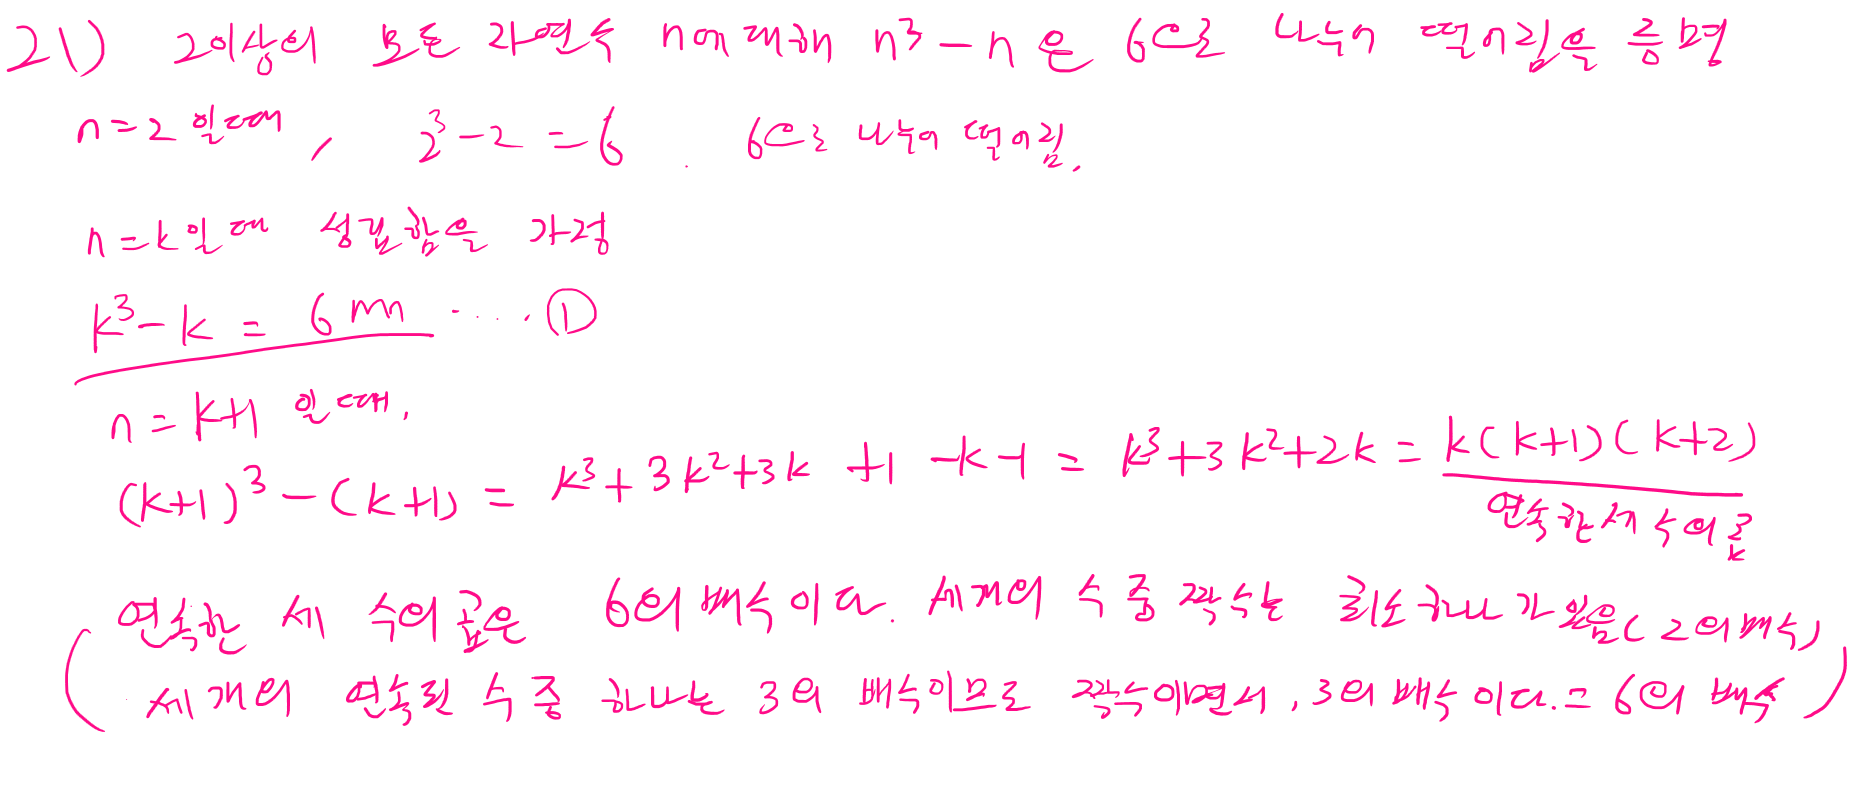 21) 2이상의 모든 자연수 n에 대해 n³-n은 6으로 나누어 떨어짐을 증명
n=2 일때, 2³-2=6. 6으로 나누어 떨어짐.
n=k일 때 성립함을 가정
k³-k = 6m ····①
n=k+1 일때,
(k+1)³-(k+1) = k³+3k²+3k+1-k-1 = k³+3k²+2k = k(k+1)(k+2)
연속한 세 수의 곱
(연속한 세 수의 곱은 6의 배수이다. 세개의 수 중 짝수는 최소 하나가 있음(2의 배수)
세개의 연속된 수 중 하나는 3의 배수이므로 짝수이면서, 3의 배수이다.=6의 배수)